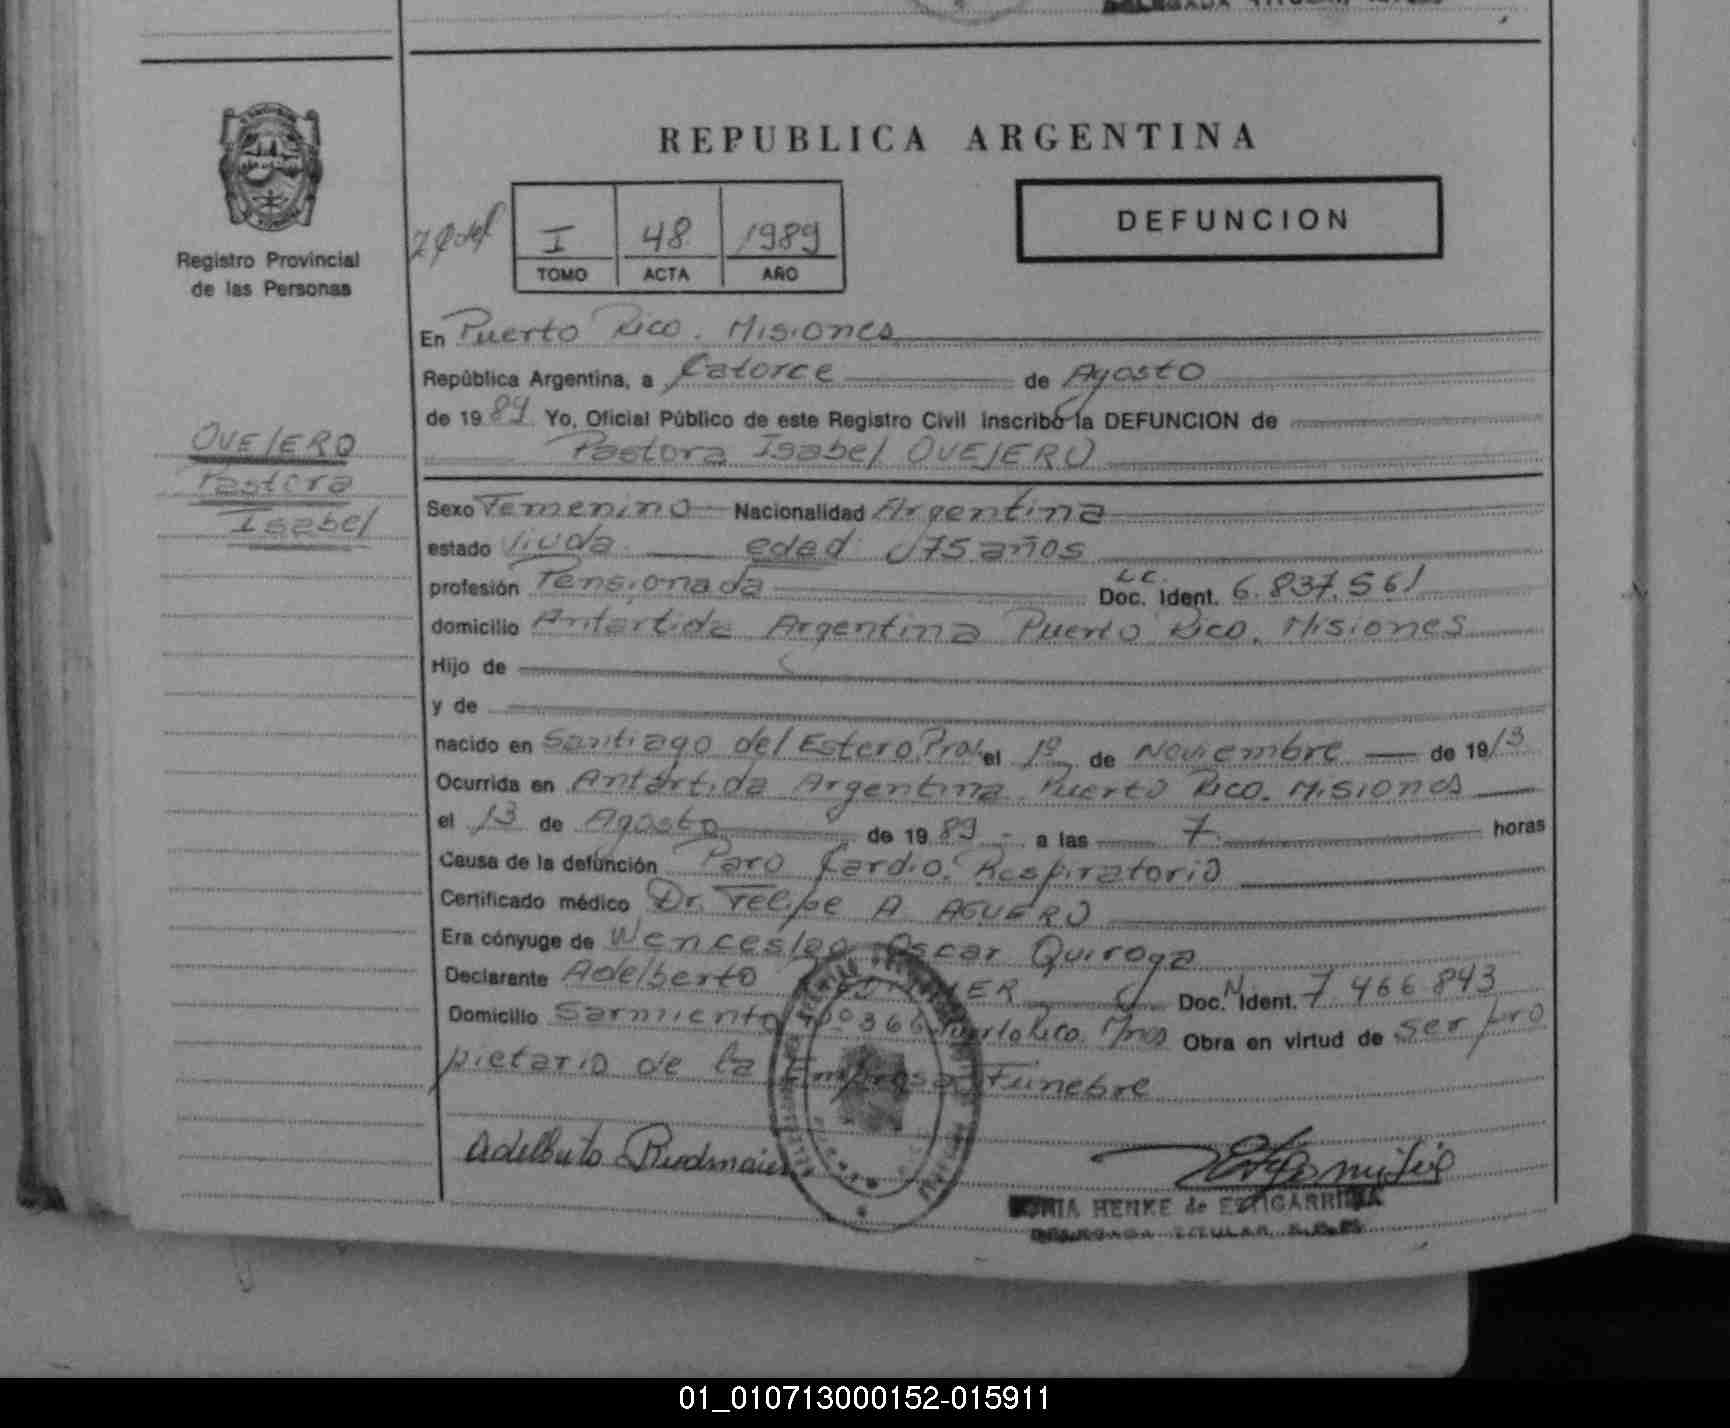 REPUBLICA ARGENTINA
DEFUNCION
I 48 1989
TOMO ACTA AÑO
Registro Provincial
de las Personas
OVEJERO
Pastora
Isabel
En Puerto Rico. Misiones
República Argentina, a Catorce de Agosto
de 1989 Yo, Oficial Público de este Registro Civil inscribo la DEFUNCION de
Pastora Isabel OVEJERO
Sexo Femenino Nacionalidad Argentina
estado Viuda edad 75 años
profesión Pensionada L.C. Doc. Ident. 6.837.561
domicilio Antártida Argentina Puerto Rico. Misiones
Hijo de
y de
nacido en Santiago del Estero el 1º de Noviembre de 1913
Ocurrida en Antártida Argentina. Puerto Rico. Misiones
el 13 de Agosto de 1989 - a las 7 horas
Causa de la defunción Paro Cardio. Respiratorio
Certificado médico Dr. Felipe A AGUERO
Era cónyuge de Wenceslao Oscar Quiroga
Declarante Adelberto Doc. N Ident. 7.466.843
Domicilio Sarmiento Nº 366 Puerto Rico. Mnes Obra en virtud de ser pro
pietario de la Empresa Funebre
Adelberto Riedmaier
SONIA HENKE de ESTIGARRIBIA
DELEGADA TITULAR
01_010713000152-015911